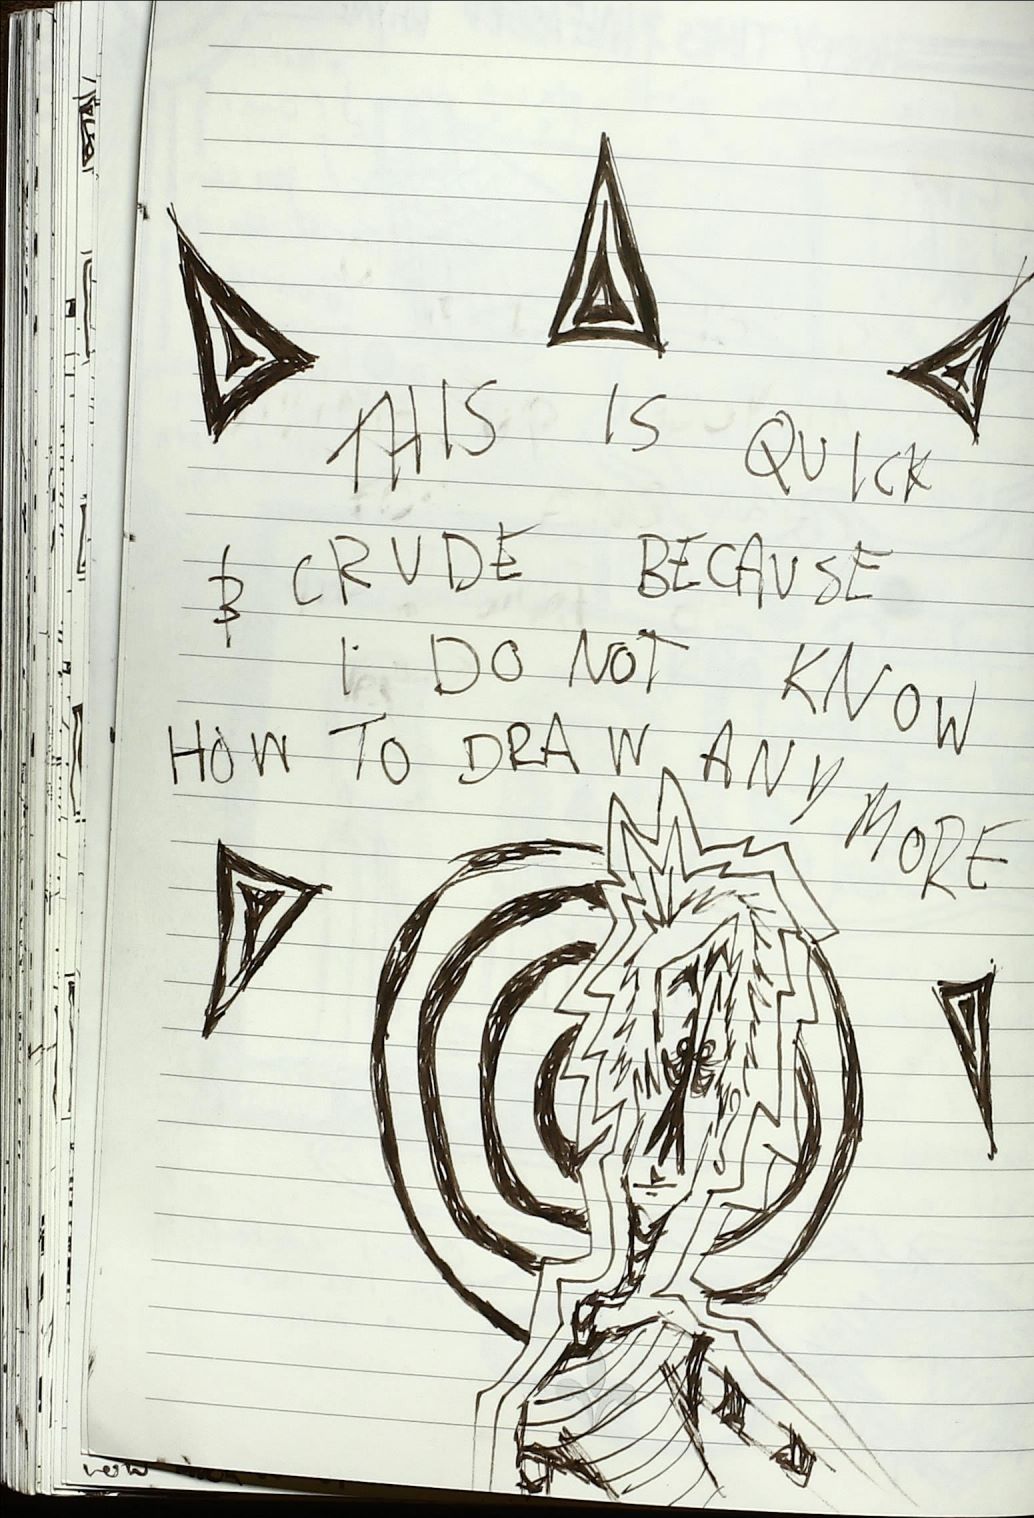 THIS IS QUICK
& CRUDE BECAUSE
I DO NOT KNOW
HOW TO DRAW ANY MORE